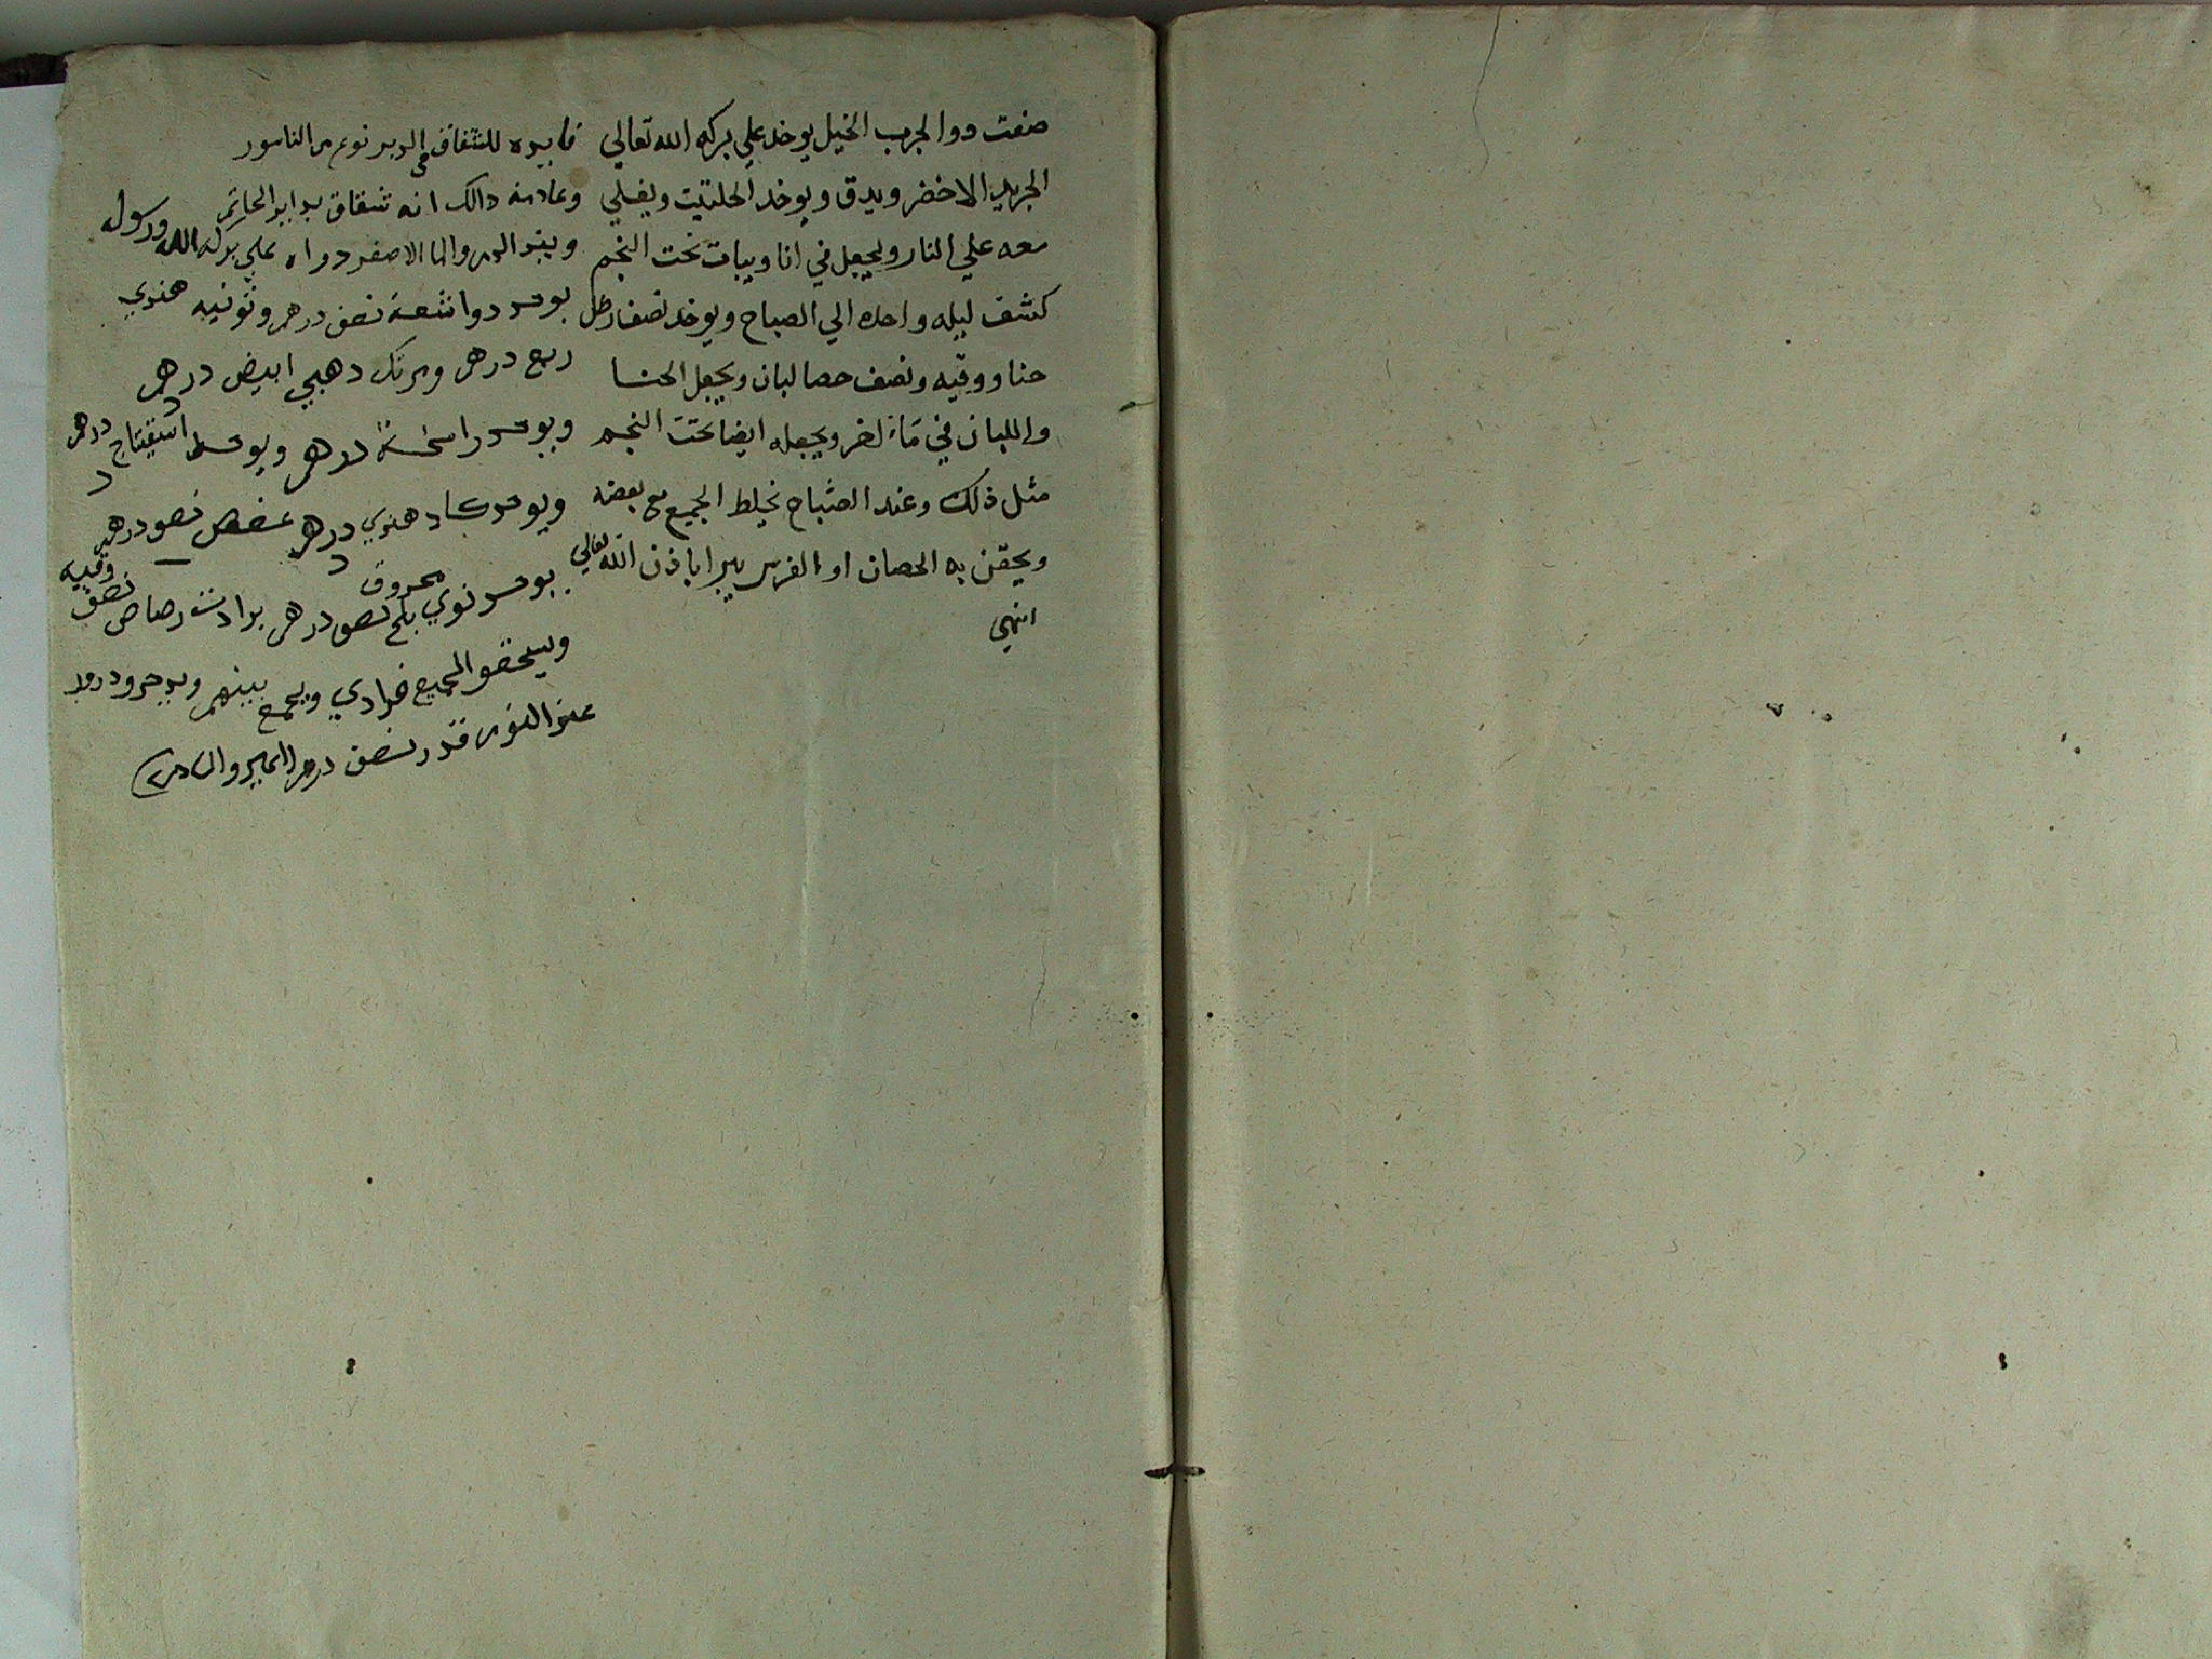 صفت دوا لجرب الخيل يوخد علي بركه الله تعالي
الجريد الاخضر ويدق ويوخد الحلتيت ويغلي
معه علي النار ويجعل في انا ويبات تحت النجم
كشف ليله واحده الي الصباح ويوخد نصف رطل
حنا ووقيه ونصف حصالبان ويجعل الحنا
واللبان في ماء اخر ويجعله ايضا تحت النجم
مثل ذلك وعند الصباح يخلط الجميع مع بعضه
ويحقن به الحصان او الفرس يبرا باذن الله تعالي
انتهي
فايده للشقاق في الدبر نوع من الناسور
وعلامة دالك انه شقاق
والما الاصفر دواه علي بركه الله ورسول
نصف درهم وتوتيه هندي
ربع درهم ومرتك دهبي ابيض درهم
درهم ويوخد درهم
ويوخد هندي درهم عفص نصف درهم
نوي بلح محروق نصف درهم برادت رصاص نصف وقيه
الجميع فرادي ويجمع بينهم
عند النوم قدر نصف درهم